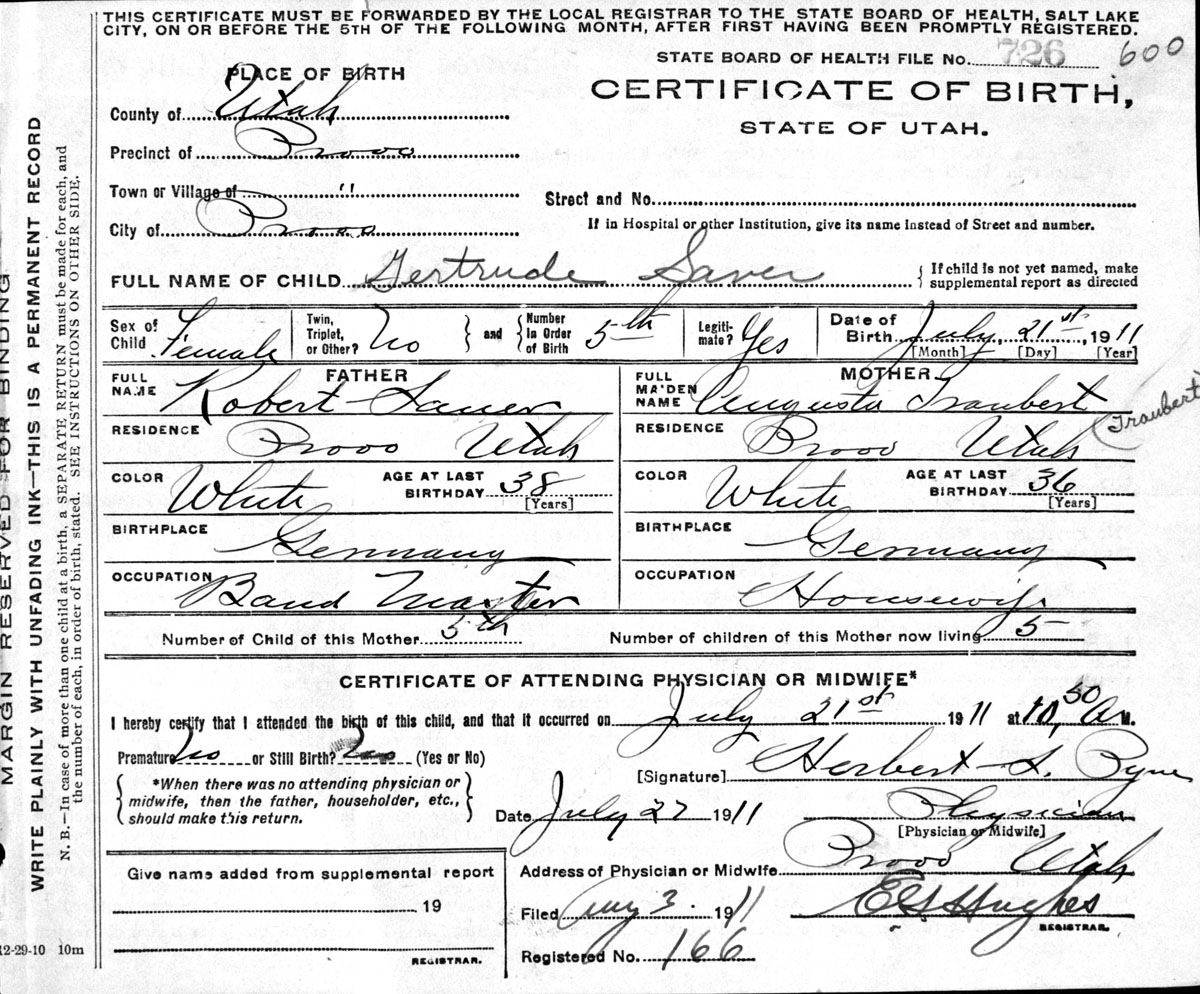 THIS CERTIFICATE MUST BE FORWARDED BY THE LOCAL REGISTRAR TO THE STATE BOARD OF HEALTH, SALT LAKE
CITY, ON OR BEFORE THE 5TH OF THE FOLLOWING MONTH, AFTER FIRST HAVING BEEN PROMPTLY REGISTERED.
STATE BOARD OF HEALTH FILE NO. 726 600
PLACE OF BIRTH
CERTIFICATE OF BIRTH,
STATE OF UTAH.
County of Utah
Precinct of Provo
Town or Village of "
Street and No.
City of Provo
If in Hospital or other Institution, give its name instead of Street and number.
FULL NAME OF CHILD Gertrude Sauer
If child is not yet named, make
supplemental report as directed
Sex of Child Female
Twin, Triplet, or Other? No
and
Number In Order of Birth 5th
Legiti-mate? Yes
Date of Birth July 21st, 1911
[Month] [Day] [Year]
FATHER
FULL NAME Robert Sauer
RESIDENCE Provo Utah
COLOR White
AGE AT LAST BIRTHDAY 38
[Years]
BIRTHPLACE Germany
OCCUPATION Band Master
MOTHER
FULL MAIDEN NAME Augusta Traubert
(Traubert)
RESIDENCE Provo Utah
COLOR White
AGE AT LAST BIRTHDAY 36
[Years]
BIRTHPLACE Germany
OCCUPATION Housewife
Number of Child of this Mother 5th
Number of children of this Mother now living 5
CERTIFICATE OF ATTENDING PHYSICIAN OR MIDWIFE*
I hereby certify that I attended the birth of this child, and that it occurred on July 21st 1911 at 10,30 A M.
Premature No or Still Birth? No (Yes or No)
*When there was no attending physician or
midwife, then the father, householder, etc.,
should make this return.
[Signature] Herbert S. Pyne
Date July 27 1911
Physician
[Physician or Midwife]
Address of Physician or Midwife Provo Utah
Give name added from supplemental report
19
REGISTRAR.
Filed Aug 3. 1911
E G Hughes
REGISTRAR.
Registered No. 166
12-29-10 10m
MARGIN RESERVED FOR BINDING
WRITE PLAINLY WITH UNFADING INK—THIS IS A PERMANENT RECORD
N. B.—In case of more than one child at a birth, a SEPARATE RETURN must be made for each, and
the number of each, in order of birth, stated. SEE INSTRUCTIONS ON OTHER SIDE.